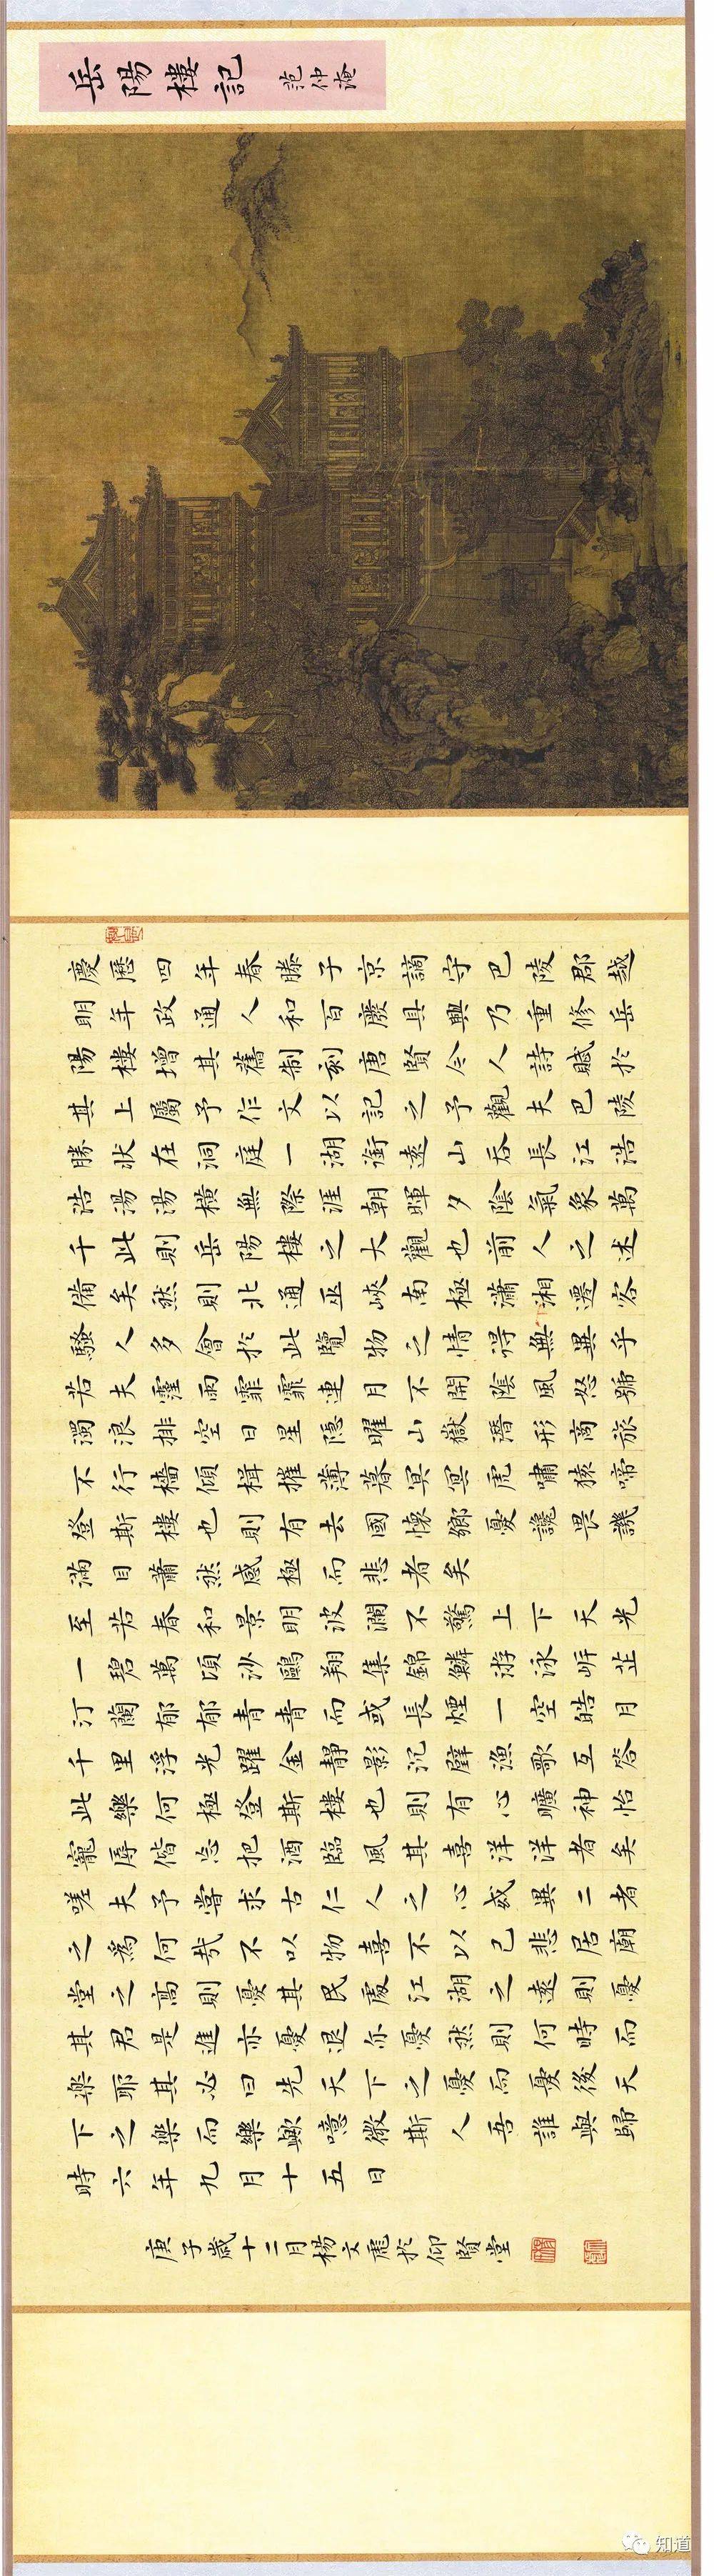 岳陽樓記
范仲淹
慶歷四年春滕子京謫守巴陵郡越
明年政通人和百廢具興乃重修岳
陽樓增其舊制刻唐賢今人詩賦於
其上屬予作文以記之予觀夫巴陵
勝狀在洞庭一湖銜遠山吞長江浩
浩湯湯橫無際涯朝暉夕陰氣象萬
千此則岳陽樓之大觀也前人之述
備矣然則北通巫峽南極瀟湘遷客
騷人多會於此覽物之情得無異乎
若夫霪雨霏霏連月不開陰風怒號
濁浪排空日星隱曜山嶽潛形商旅
不行檣傾楫摧薄暮冥冥虎嘯猿啼
登斯樓也則有去國懷鄉憂讒畏譏
滿目蕭然感極而悲者矣
至若春和景明波瀾不驚上下天光
一碧萬頃沙鷗翔集錦鱗游泳岸芷
汀蘭郁郁青青而或長煙一空皓月
千里浮光躍金靜影沉璧漁歌互答
此樂何極登斯樓也則有心曠神怡
寵辱偕忘把酒臨風其喜洋洋者矣
嗟夫予嘗求古仁人之心或異二者
之為何哉不以物喜不以己悲居廟
堂之高則憂其民處江湖之遠則憂
其君是進亦憂退亦憂然則何時而
樂耶其必曰先天下之憂而憂後天
下之樂而樂歟噫微斯人吾誰與歸
時六年九月十五日
庚子歲十二月楊文彪於仰賢堂
知道